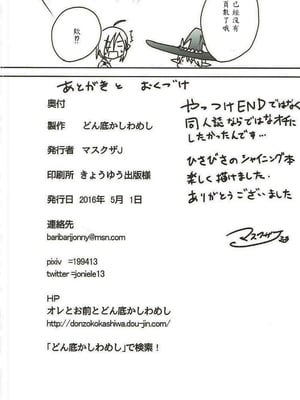 已經沒有
頁數了哦
欸!?
あとがきと おくづけ
やっつけENDではなく
同人誌ならではなオチに
したかったんです…
ひさびさのシャイニング本
楽しく描けました。
ありがとうございました
マスクザJ
奥付
製作 どん底かしわめし
発行者 マスクザJ
印刷所 きょうゆう出版様
発行日 2016年 5月 1日
連絡先
baribarijonny@msn.com
pixiv =199413
twitter =joniele13
HP
オレとお前とどん底かしわめし
http://donzokokashiwa.dou-jin.com/
「どん底かしわめし」で検索!